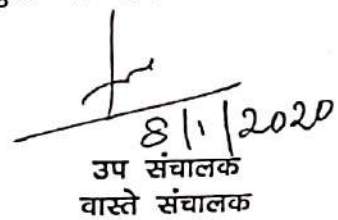 8/1/2020
उप संचालक
वास्ते संचालक